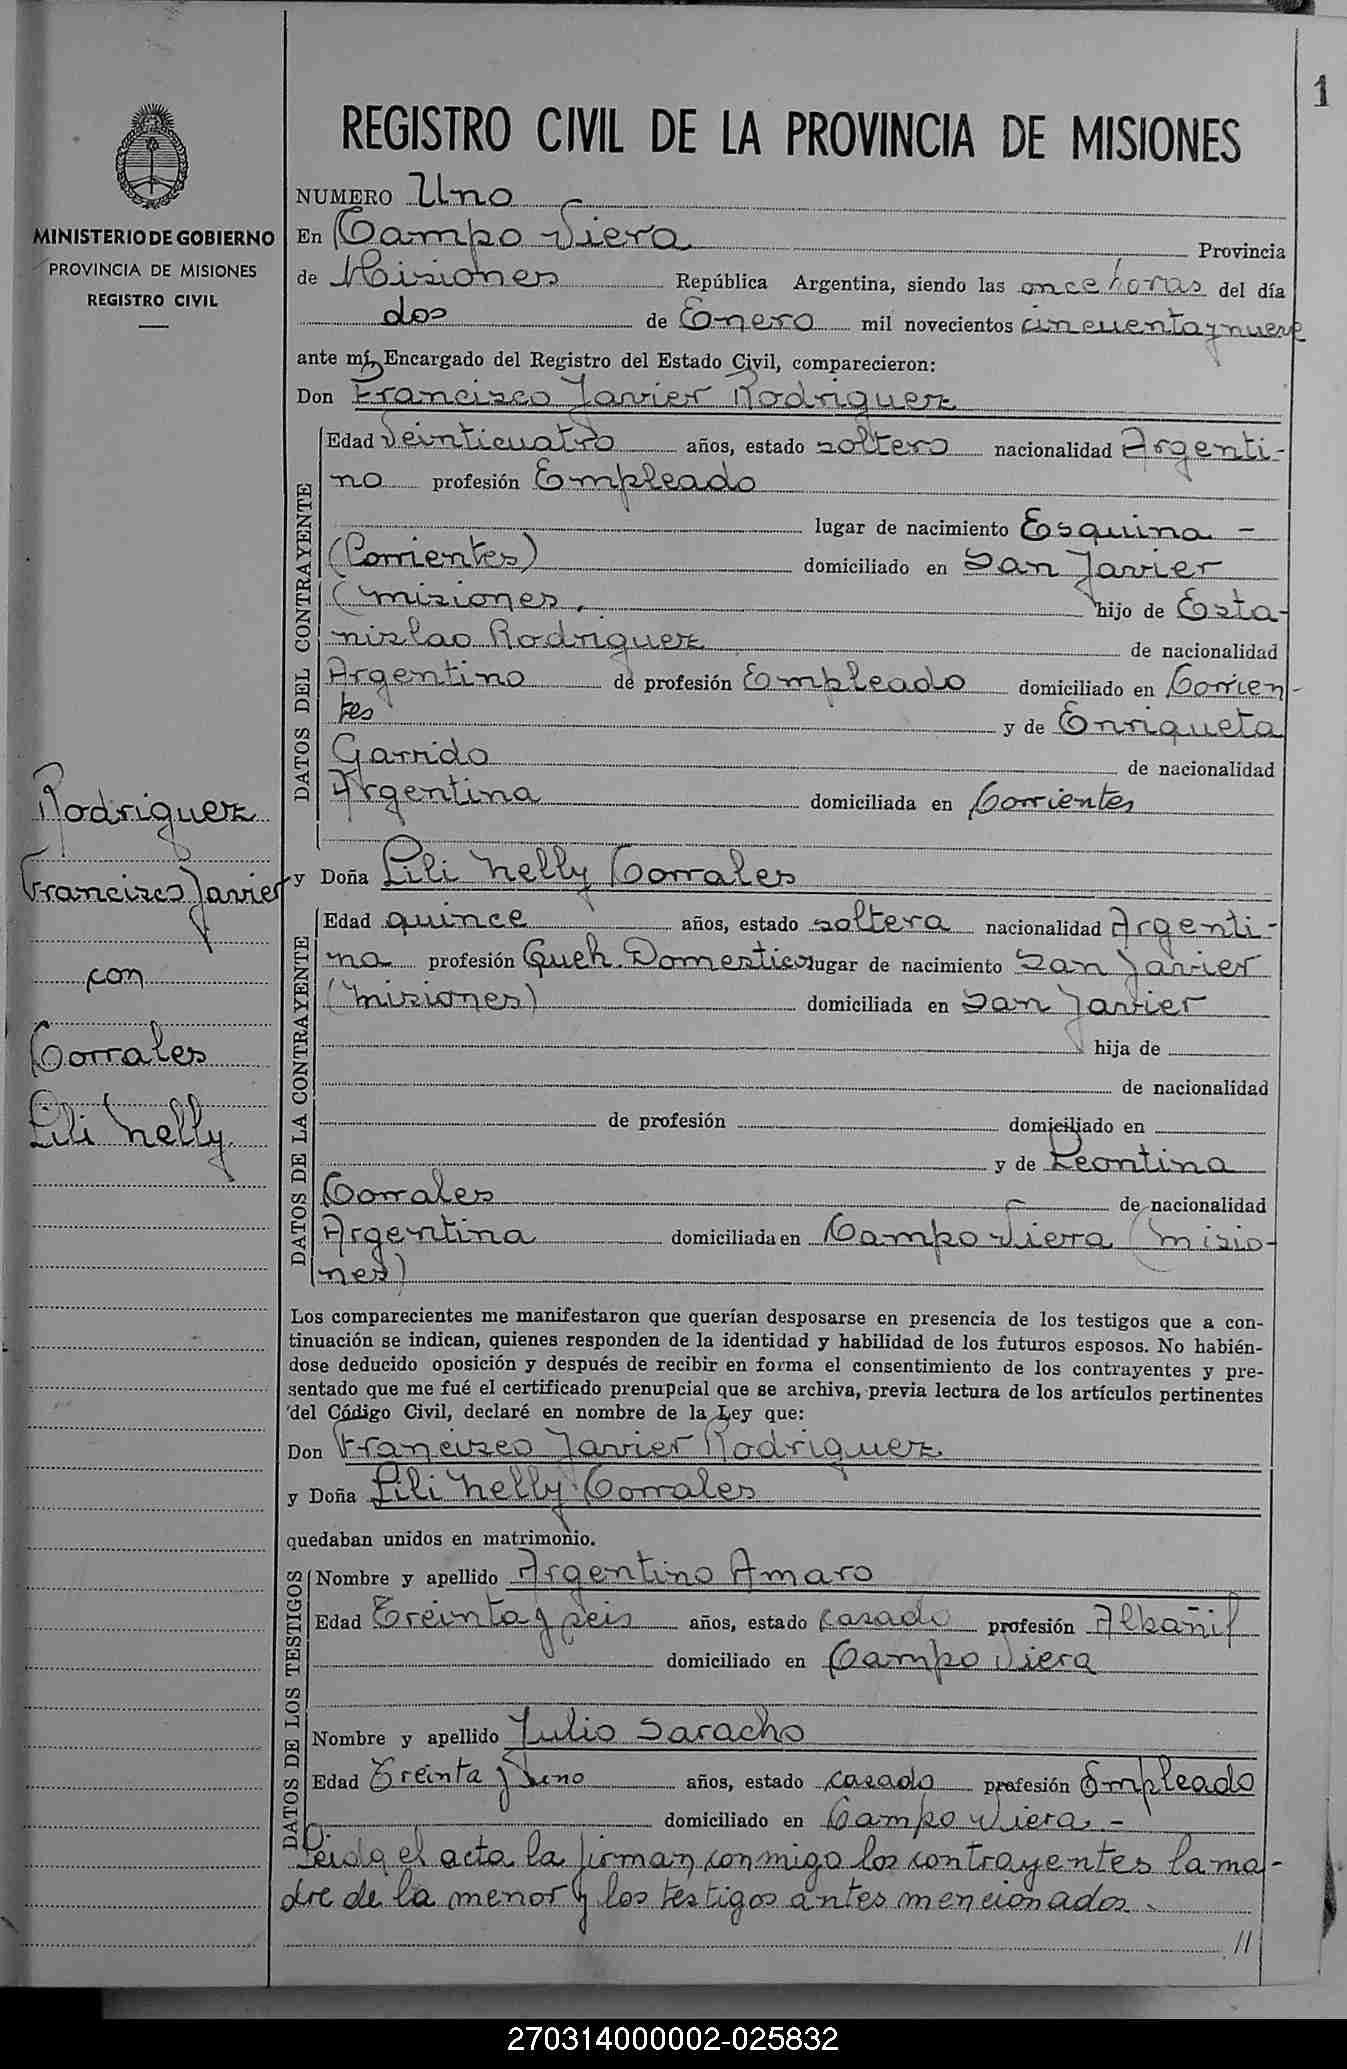 1
REGISTRO CIVIL DE LA PROVINCIA DE MISIONES
MINISTERIO DE GOBIERNO
PROVINCIA DE MISIONES
REGISTRO CIVIL
NUMERO Uno
En Campo Viera Provincia
de Misiones República Argentina, siendo las once horas del día
dos de Enero mil novecientos cincuenta y nueve
ante mí, Encargado del Registro del Estado Civil, comparecieron:
Don Francisco Javier Rodriguez
DATOS DEL CONTRAYENTE
Edad Veinticuatro años, estado soltero nacionalidad Argenti-
no profesión Empleado
lugar de nacimiento Esquina -
(Corrientes) domiciliado en San Javier
(Misiones. hijo de Esta-
nislao Rodriguez de nacionalidad
Argentino de profesión Empleado domiciliado en Corrien-
tes y de Enriqueta
Garrido de nacionalidad
Argentina domiciliada en Corrientes
Rodriguez
Francisco Javier
con
Corrales
Lili Nelly
y Doña Lili Nelly Corrales
DATOS DE LA CONTRAYENTE
Edad quince años, estado soltera nacionalidad Argenti-
na profesión Queh. Domesticos lugar de nacimiento San Javier
(Misiones) domiciliada en San Javier
hija de
de nacionalidad
de profesión domiciliado en
y de Leontina
Corrales de nacionalidad
Argentina domiciliada en Campo Viera (Misio-
nes)
Los comparecientes me manifestaron que querían desposarse en presencia de los testigos que a con-
tinuación se indican, quienes responden de la identidad y habilidad de los futuros esposos. No habién-
dose deducido oposición y después de recibir en forma el consentimiento de los contrayentes y pre-
sentado que me fué el certificado prenupcial que se archiva, previa lectura de los artículos pertinentes
del Código Civil, declaré en nombre de la Ley que:
Don Francisco Javier Rodriguez
y Doña Lili Nelly Corrales
quedaban unidos en matrimonio.
DATOS DE LOS TESTIGOS
Nombre y apellido Argentino Amaro
Edad Treinta y seis años, estado casado profesión Albañil
domiciliado en Campo Viera
Nombre y apellido Julio Saracho
Edad Treinta y uno años, estado casado profesión Empleado
domiciliado en Campo Viera.-
Leida el acta la firman conmigo los contrayentes la ma-
dre de la menor y los testigos antes mencionados.
//
270314000002-025832